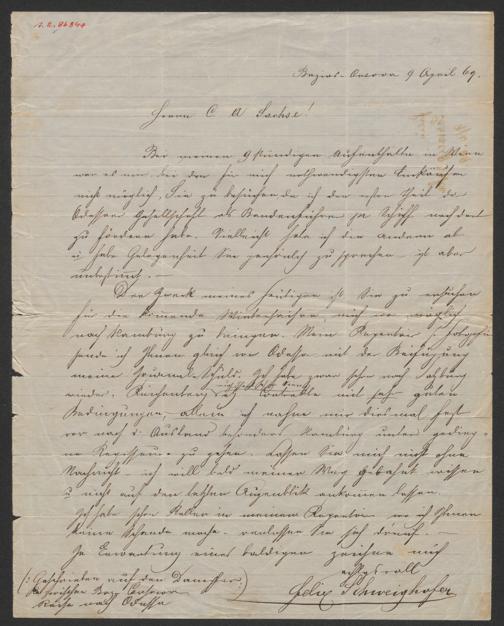 Bazias-Orsova 9 April 69.
Herrn C A Sachse!
Bei meinem 9 stündigen Aufenthalte in Wien
war es mir bei den für mich nothwendigsten Einkäufen
nicht möglich, Sie zu besuchen da ich den ersten Theil der
Odessaer Gesellschaft als zu Schiff nach dort
zu habe. Vielleicht hole ich die anderen ab
u habe Gelegenheit Sie persönlich zu sprechen – ist aber
unbestimmt. –
Der Zweck meines Heutigen ist Sie zu ersuchen
für die kommende Wintersaison, mich wo möglich
nach Hamburg zu bringen. Mein Repertoir u
sende ich Ihnen gleich von Odessa mit der
meiner Schuld. Ich habe zwar sehr nach
wieder, Reichenberg etz Contrakte mit sehr guten
Bedingungen, allein ich nahm mir diesmal fest
vor nach d. Ausland besonders Hamburg unter
zu gehen. Lassen Sie mich nicht ohne
Nachricht – ich will bald meinen Weg gebahnt wissen
u nicht auf den letzten Augenblick ankommen lassen.
Ich habe schon Rollen in meinem Repertoir wo ich Ihnen
keine Schande mache. verlassen Sie sich drauf. –
In Erwartung eines baldigen zeichne mich
achtungsvoll
Felix Schweighofer
(: Geschrieben auf dem Dampfer
zwischen Baz Orsova
Reise nach Odessa